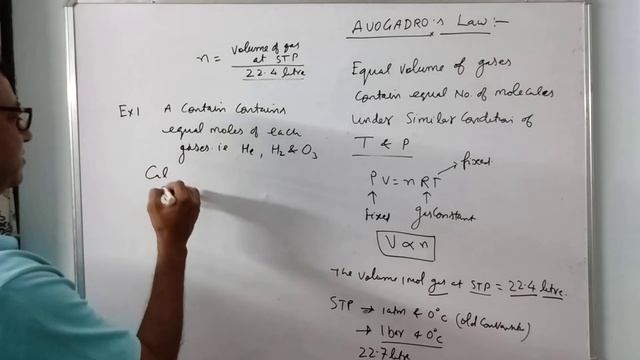 AVOGADRO's Law:-
n = Volume of gas at STP
22.4 litre
Equal Volume of gases
Contain equal No. of molecules
under Similar Condition of
T & P
Ex1 A Contain Contains
equal moles of each
gases. ie He, H2 & O3
Cal
PV = nRT → fixed
↑ ↑
fixed gas Constant
V ∝ n
The volume 1 mol gas at STP = 22.4 litre.
STP → 1 atm & 0°C (old Convention)
→ 1 bar & 0°C
22.7 litre